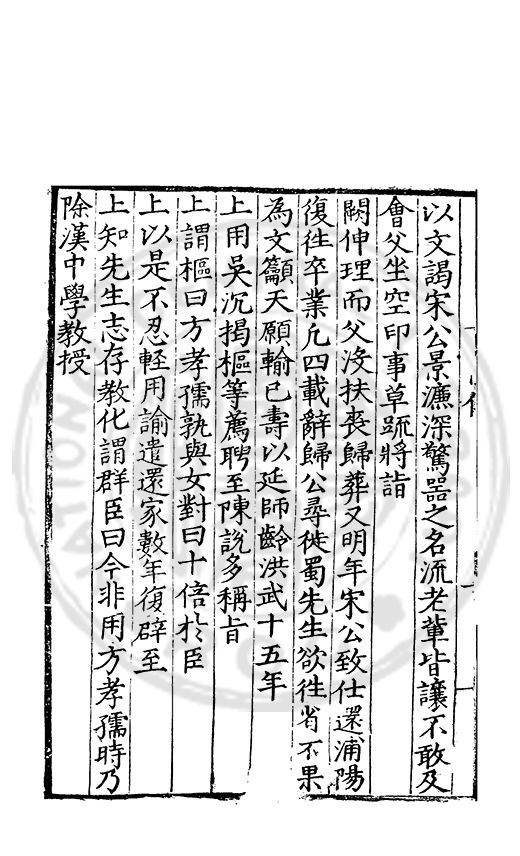 以文謁宋公景濂深驚器之名流老輩皆讓不敢及
會父坐空印事草䟽將詣
闕伸理而父沒扶喪歸葬又明年宋公致仕還浦陽
復徃卒業凢四載辭歸公尋徙蜀先生欲徃省不果
為文籲天願輸已壽以延師齡洪武十五年
上用吳沉揭樞等薦聘至陳說多稱旨
上謂樞曰方孝孺孰與女對曰十倍於臣
上以是不忍輕用諭遣還家數年復辟至
上知先生志存教化謂群臣曰今非用方孝孺時乃
除漢中學教授